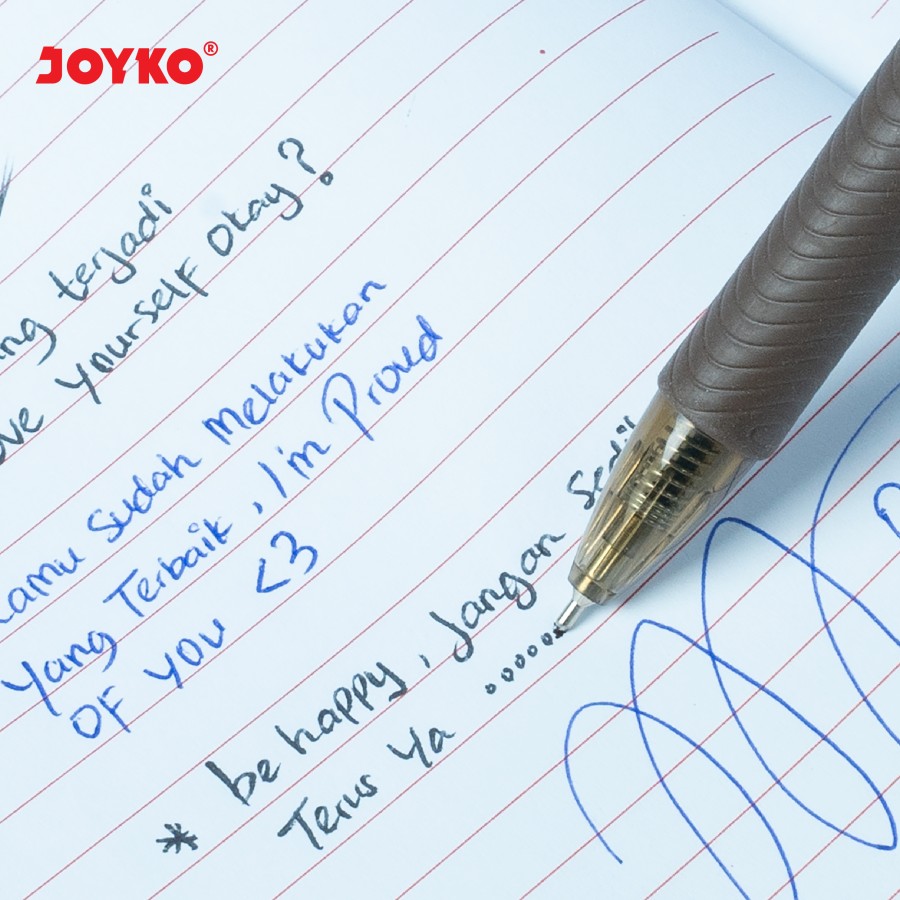 JOYKO®
terjadi
yourself okay?
kamu sudah Melakukan
yang Terbaik, I'm Proud
OF YOU <3
* be happy, Jangan
Terus Ya ......